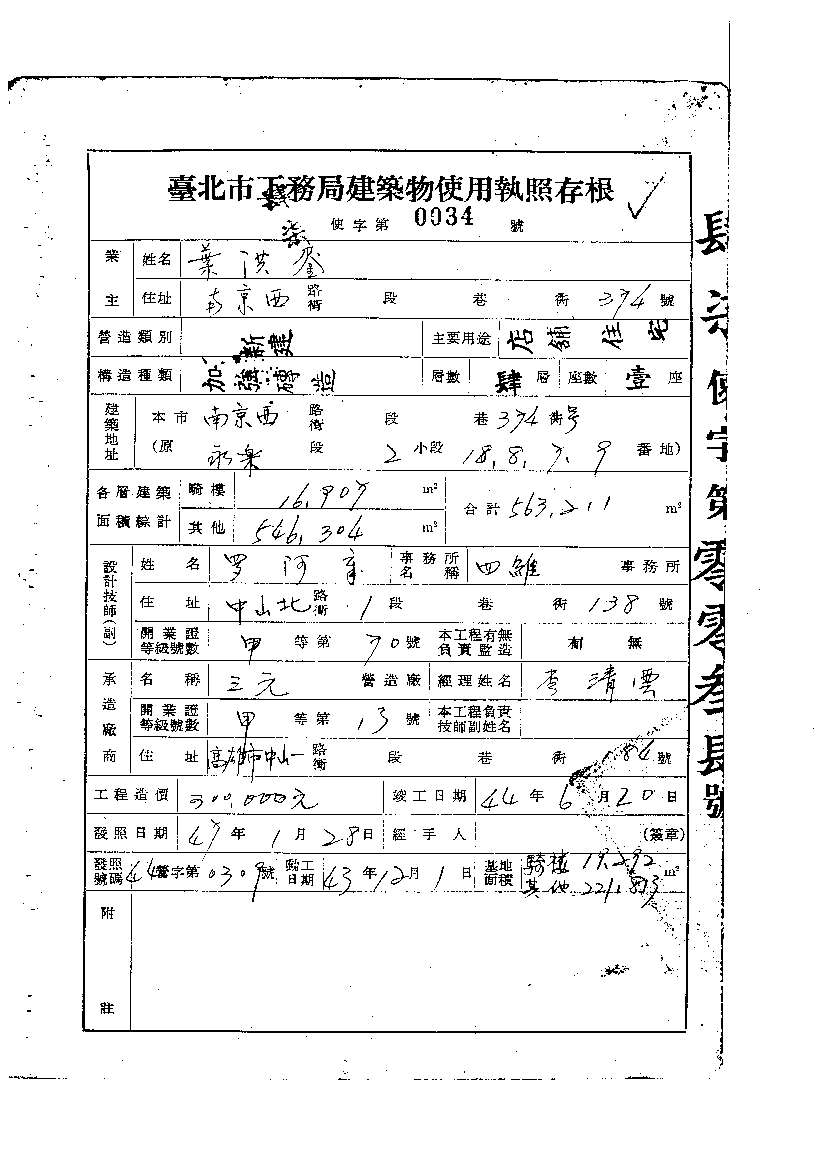 臺北市工務局建築物使用執照存根
肆柒 使字第 0034 號
業主 姓名 葉洪
住址 南京西 路街 段 巷 衖 374 號
營造類別 新建 主要用途 店舖住宅
構造種類 加強磚造 層數 肆 層 座數 壹 座
建築地址 本市 南京西 路街 段 巷 374 衖号
(原 永樂 段 2 小段 18.8.7.9 番地)
各層建築面積綜計 騎樓 16.907 m² 合計 563.211 m²
其他 546.304 m²
設計技師(副) 姓名 罗阿 事務所名稱 四維 事務所
住址 中山北 路街 1 段 巷 衖 138 號
開業證等級號數 甲 等第 70 號 本工程有無負責監造 有 無
承造廠商 名稱 三元 營造廠 經理姓名 李清雲
開業證等級號數 甲 等第 13 號 本工程負責技師副姓名
住址 高雄市中山一 路街 段 巷 衖 184 號
工程造價 300,000元 竣工日期 44 年 6 月 20 日
發照日期 47 年 1 月 28 日 經手人 (簽章)
發照號碼 44 營字第 0309 號 動工日期 43 年 12 月 1 日 基地面積 騎樓 19.292 其他 221.893 m²
附註
肆柒使字第零零叁肆號